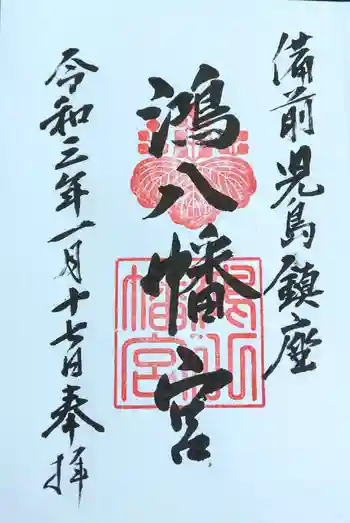 備前児島鎮座
鴻八幡宮
令和三年一月十七日奉拝